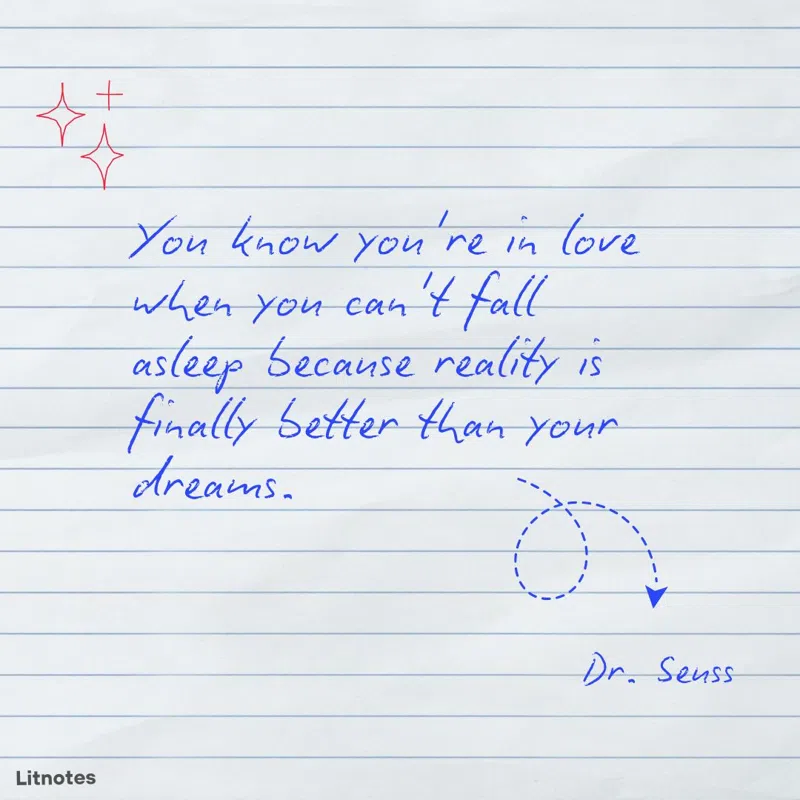 You know you're in love
when you can't fall
asleep because reality is
finally better than your
dreams.
Dr. Seuss
Litnotes